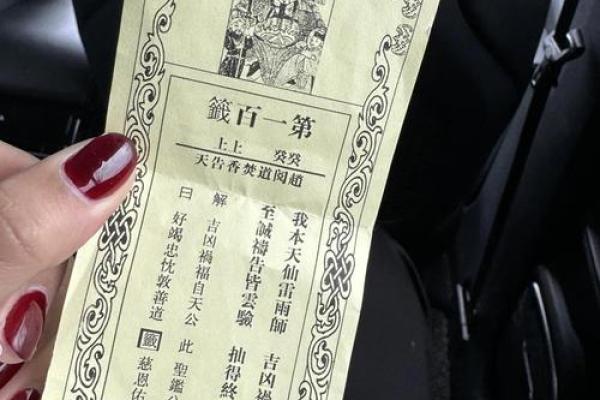 第一百籤
癸癸 上上
趙閱道焚香告天
我本天仙雷雨師 吉凶禍
至誠禱告皆雲驗 抽得終
解 吉凶禍福自天公 此 聖鑑
曰 好竭忠忱敦善道 籤 慈恩佑